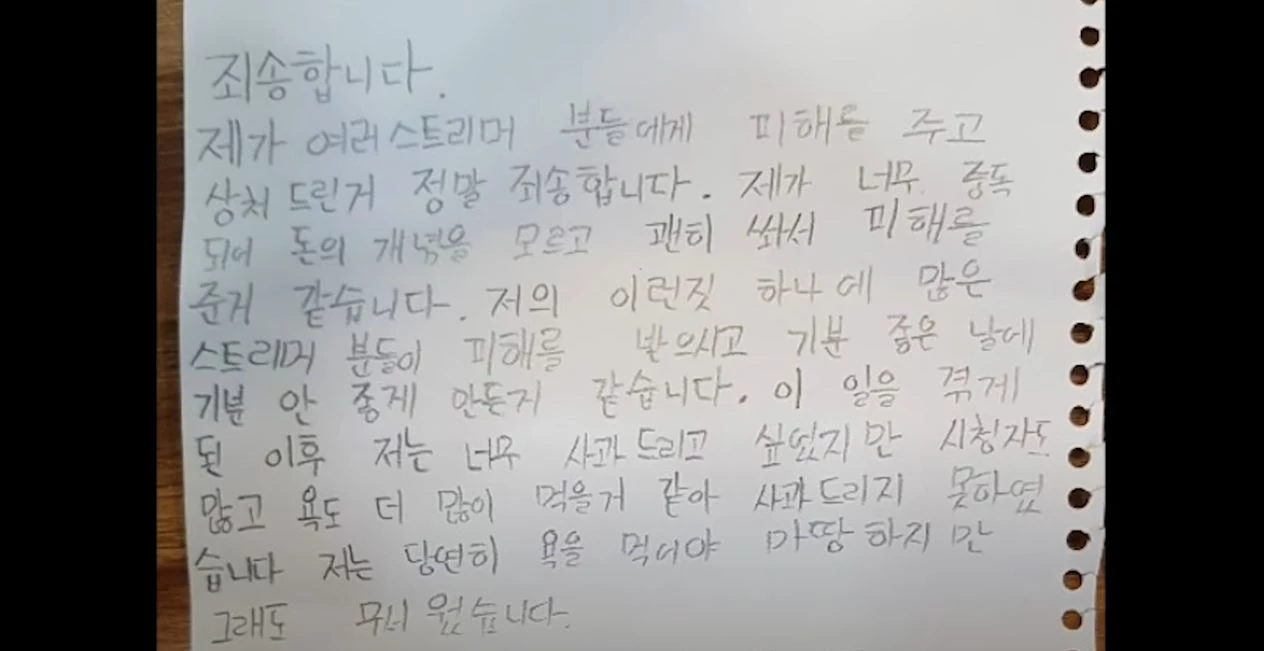 죄송합니다.
제가 여러스트리머 분들에게 피해를 주고
상처 드린거 정말 죄송합니다. 제가 너무 중독
되어 돈의 개념을 모르고 괜히 쏴서 피해를
준거 같습니다. 저의 이런짓 하나에 많은
스트리머 분들이 피해를 받으시고 기분 좋은 날에
기분 안 좋게 만든거 같습니다. 이 일을 겪게
된 이후 저는 너무 사과드리고 싶었지만 시청자도
많고 욕도 더 많이 먹을거 같아 사과드리지 못하였
습니다 저는 당연히 욕을 먹어야 마땅하지만
그래도 무서웠습니다.